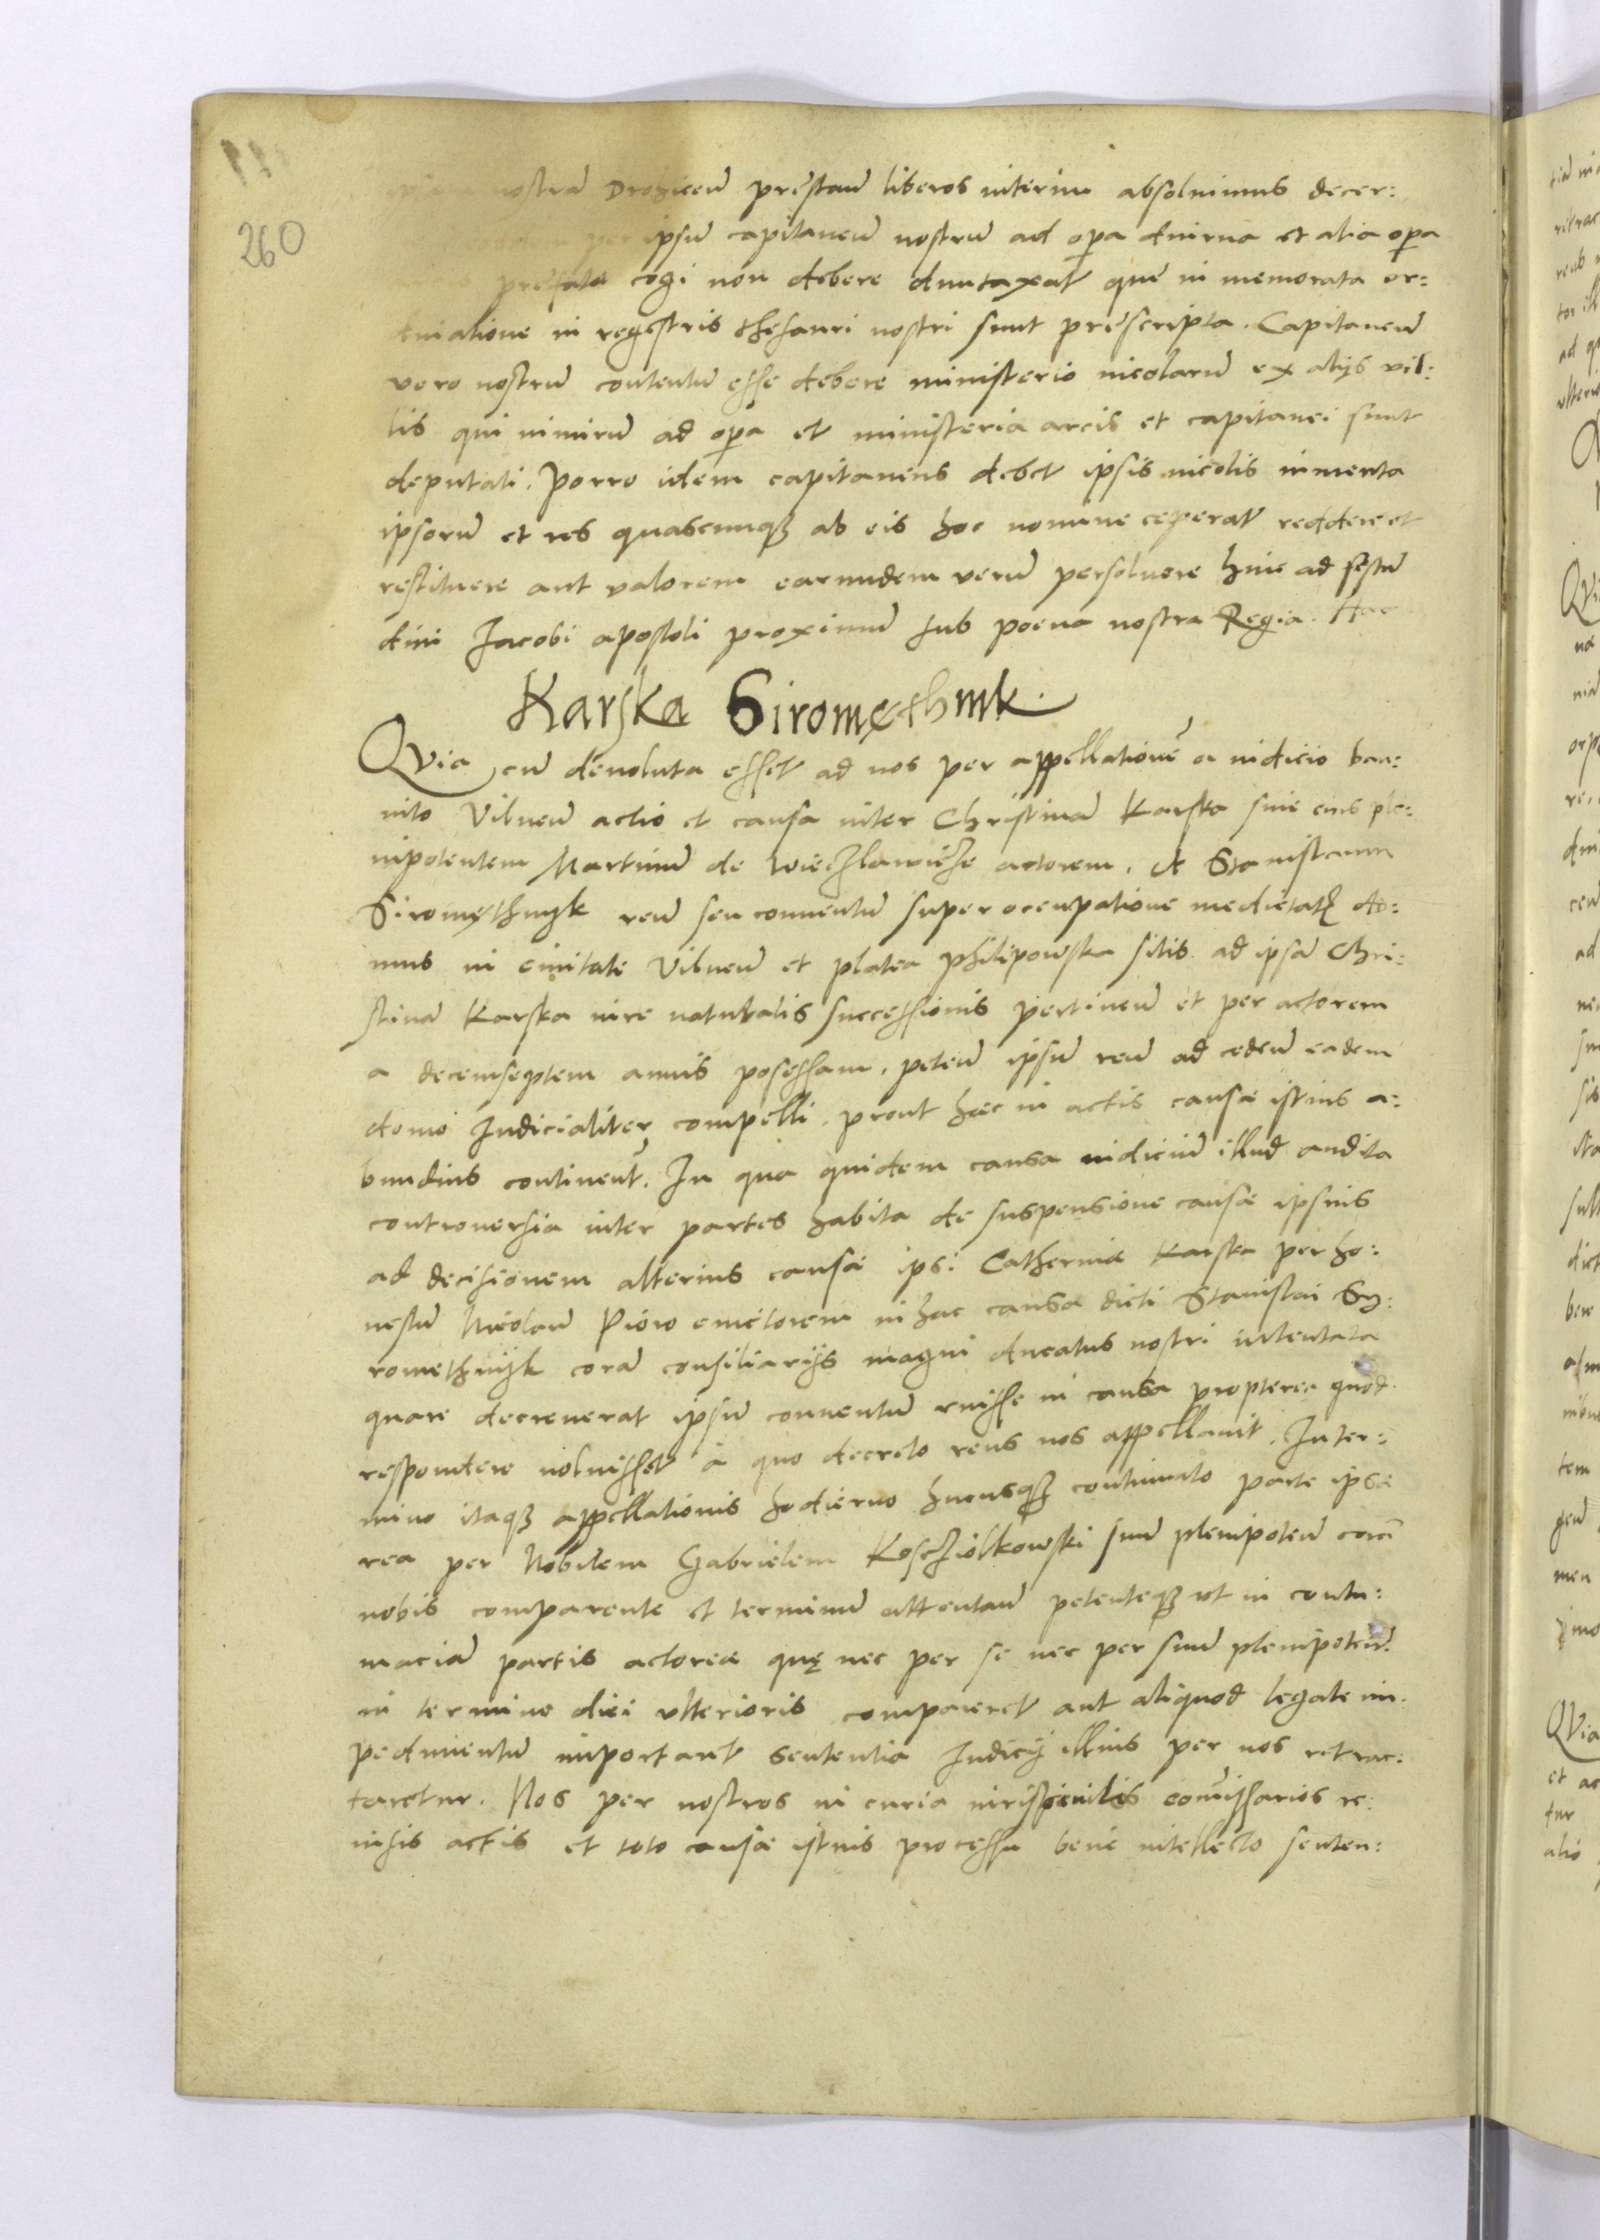 260
nostrã Drohiceñ prestaut liberos interim absoluimus decer:
per ipsũ capitaneũ nostrũ ad opa diurna et alia opa
prefata cogi non debere duntaxat que in memorata or:
dinatione in regestris thesauri nostri sunt prescripta. Capitaneũ
vero nostrũ contentũ esse debere ministerio incolarũ ex alijs vil:
lis qui nimirũ ad opa et ministeria arcis et capitanei sunt
deputati. Porro idem capitaneus debet ipsis incolis iumenta
ipsorũ et res quascunqz ab eis hoc nomine ceperat reddere et
restituere aut valorem earundem verũ persoluere hinc ad festũ
diui Jacobi apostoli proximũ sub poena nostra Regia. Hac
Karska Siromęthnik.
Quia cũ deuoluta esset ad nos per appellationẽ a iudicio ban:
nito Vilneñ actio et causa inter Christinã Karska siue eius ple:
nipotentem Martinũ de Wieczlawicze actorem. et Stanislaum
Siromęthnyk reũ seu conuentũ super occupatione medietatę do:
mus in ciuitate Vilneñ et platea philipowska sitis ad ipsã Chri:
stinã Karska iure naturalis successionis pertineñ et per actorem
a decemseptem annis posessam. peteñ ipsũ reũ ad cedeñ eadem
domo Judicialiter compelli. prout hæc in actis causæ istius a:
bundius continent. In qua quidem causa iudiciũ illud audita
controuersia inter partes habita de suspensione causæ ipsius
ad decisionem alterius causæ ipsi Catherinæ Karska per ho:
nestũ Nicolaũ Pioro euictorem in hac causa dicti Stanislai Sy:
romethnijk corã consiliarijs magni ducatus nostri intentata
quare decreuerat ipsũ conuentũ ruisse in causa propterea quod
respondere noluisset à quo decreto reus nos appellauit. In ter:
mino itaqz appellationis hodierno hucusqz continuato parte ipsa
rea per Nobilem Gabrielem Koscziolkowski suũ plenipoteñ corã
nobis comparente et terminũ attentañ petenteqz vt in contu:
maciã partis actoreæ quę nec per se nec per suũ plenipoteñ
in termino diei vlterioris compareret aut aliquod legale im:
pedimentũ importaret sententia Judicij illius per nos retrac:
taretur. Nos per nostros in curia iurisperitos com̃issarios re:
uisis actis et toto causæ istius processu bene intellecto senten: